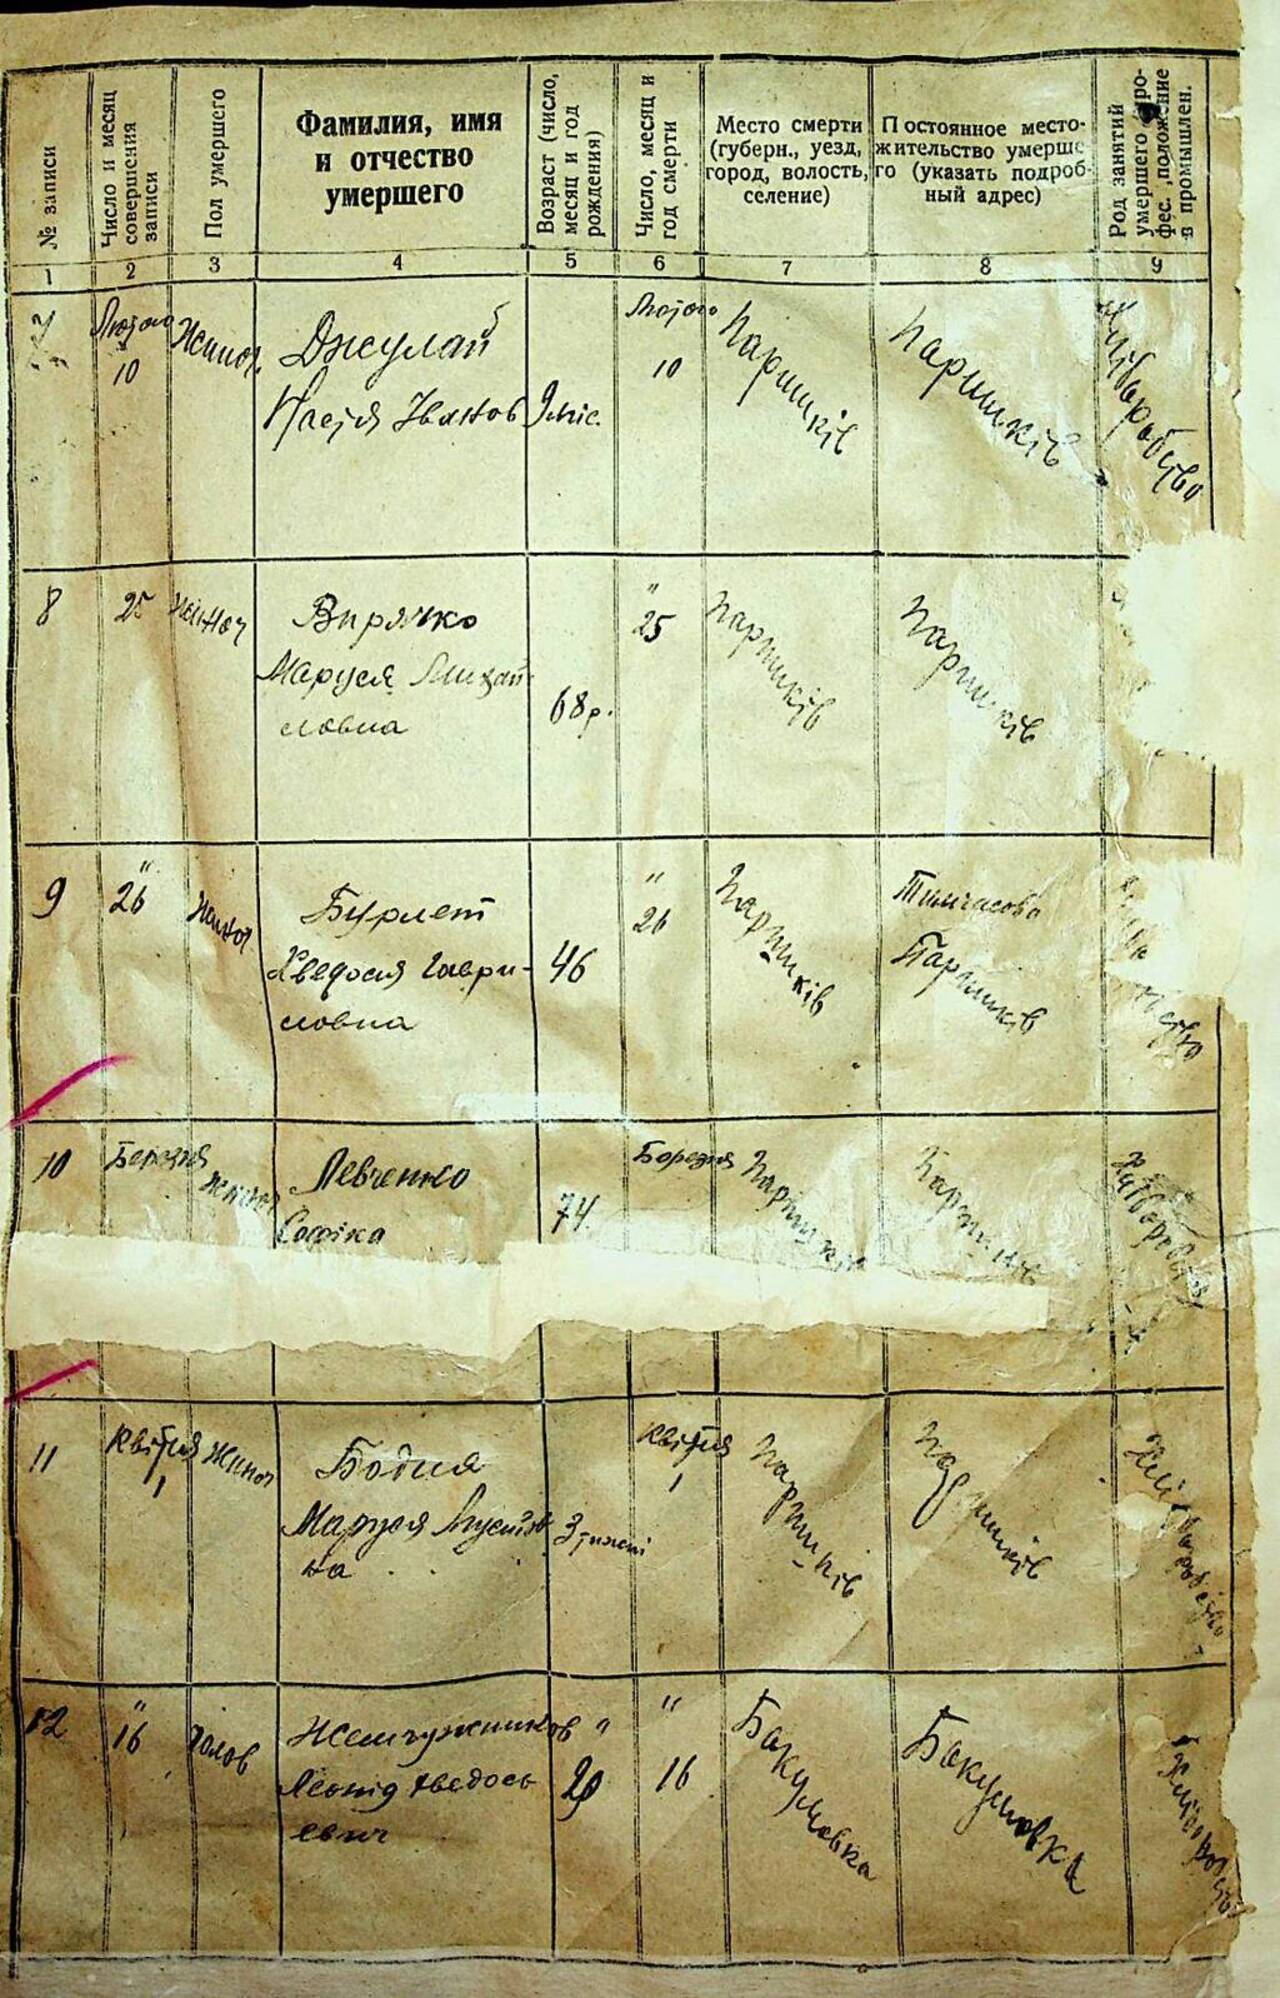 № записи
Число и месяц совершения записи
Пол умершего
Фамилия, имя
и отчество
умершего
Возраст (число, месяц и год рождения)
Число, месяц и год смерти
Место смерти
(губерн., уезд,
город, волость,
селение)
Постоянное место-
жительство умерше
го (указать подроб-
ный адрес)
Род занятий
умершего
фес. положение
в промышлен.
1 2 3 4 5 6 7 8 9
Лютого
10
Жіноч.
Джулай
Настя Іванов
9 міс.
Лютого
10
Паришків
Паришків
Хліборобство
8
25
Жіноч
Вирячко
Маруся Михай
ловна
68 р.
"
25
Паришків
Паришків
9
"
26
Жіноч
Бурлет
Хведосія Гаври-
ловна
46
"
26
Паришків
Тимчасово
Паришків
10
Березня
Жіноч
Левченко
Софіка
74
Березня
Паришків
Паришків
Хліборобство
11
Квітня
1
Жіноч
Бодня
Маруся
на
3 тижні
Квітня
1
Паришків
Паришків
Хліборобство
12
"
16
Чолов
Жемчужников
Леонід Хведось
евич
"
20
"
16
Бакумовка
Бакумовка